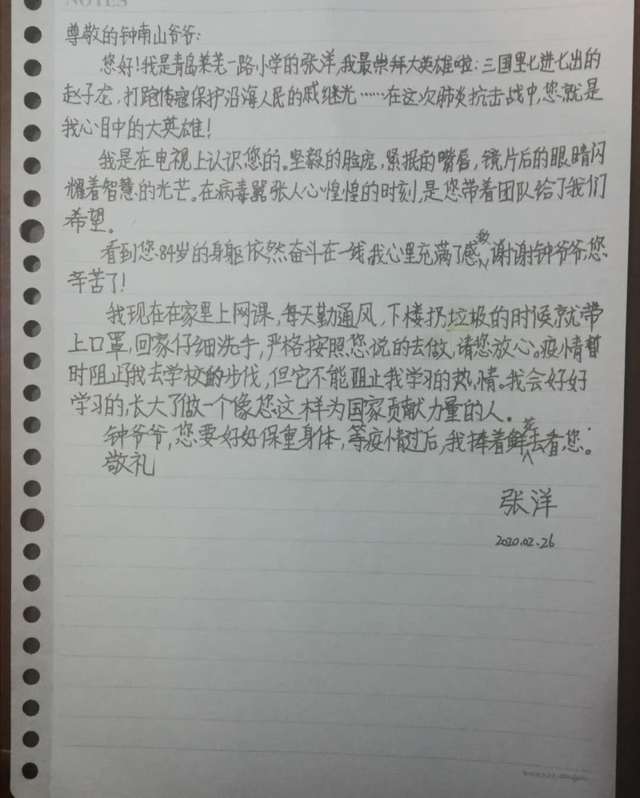 NOTES
尊敬的钟南山爷爷:
您好!我是青岛莱芜一路小学的张洋,我最崇拜大英雄啦:三国里七进七出的
赵子龙,打跑倭寇保护沿海人民的戚继光……在这次肺炎抗击战中,您就是
我心目中的大英雄!
我是在电视上认识您的。坚毅的脸庞,紧抿的嘴唇,镜片后的眼睛闪
耀着智慧的光芒。在病毒嚣张人心惶惶的时刻,是您带着团队给了我们
希望。
看到您84岁的身躯依然奋斗在一线,我心里充满了感激,谢谢钟爷爷,您
辛苦了!
我现在在家里上网课,每天勤通风,下楼扔垃圾的时候就带
上口罩,回家仔细洗手,严格按照您说的去做,请您放心。疫情暂
时阻止我去学校的步伐,但它不能阻止我学习的热情。我会好好
学习的,长大了做一个像您这样为国家贡献力量的人。
钟爷爷,您要好好保重身体,等疫情过后,我捧着鲜花去看您。
敬礼
张洋
2020.02.26